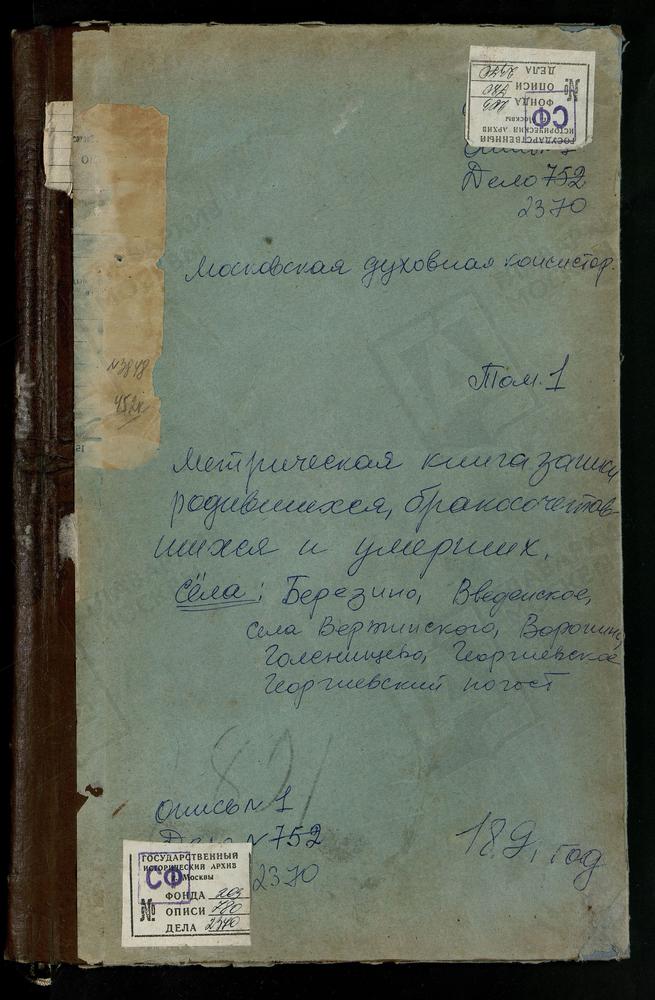 ГОСУДАРСТВЕННЫЙ
ИСТОРИЧЕСКИЙ АРХИВ
Москвы
СФ
ФОНДА 203
№ ОПИСИ 780
ДЕЛА 2370
Дело 752
2370
Московская духовная консистор.
№3848
Том. 1
Метрическая книга записи
родившихся, бракосочетав-
шихся и умерших.
Сёла: Березино, Введенское,
села Вержинского, Воронино,
Голенищево, Георгиевское
Георгиевский погост
821
Опись №1
Дело №752
2370
1821 год
ГОСУДАРСТВЕННЫЙ
ИСТОРИЧЕСКИЙ АРХИВ
Москвы
СФ
ФОНДА 203
№ ОПИСИ 780
ДЕЛА 2370